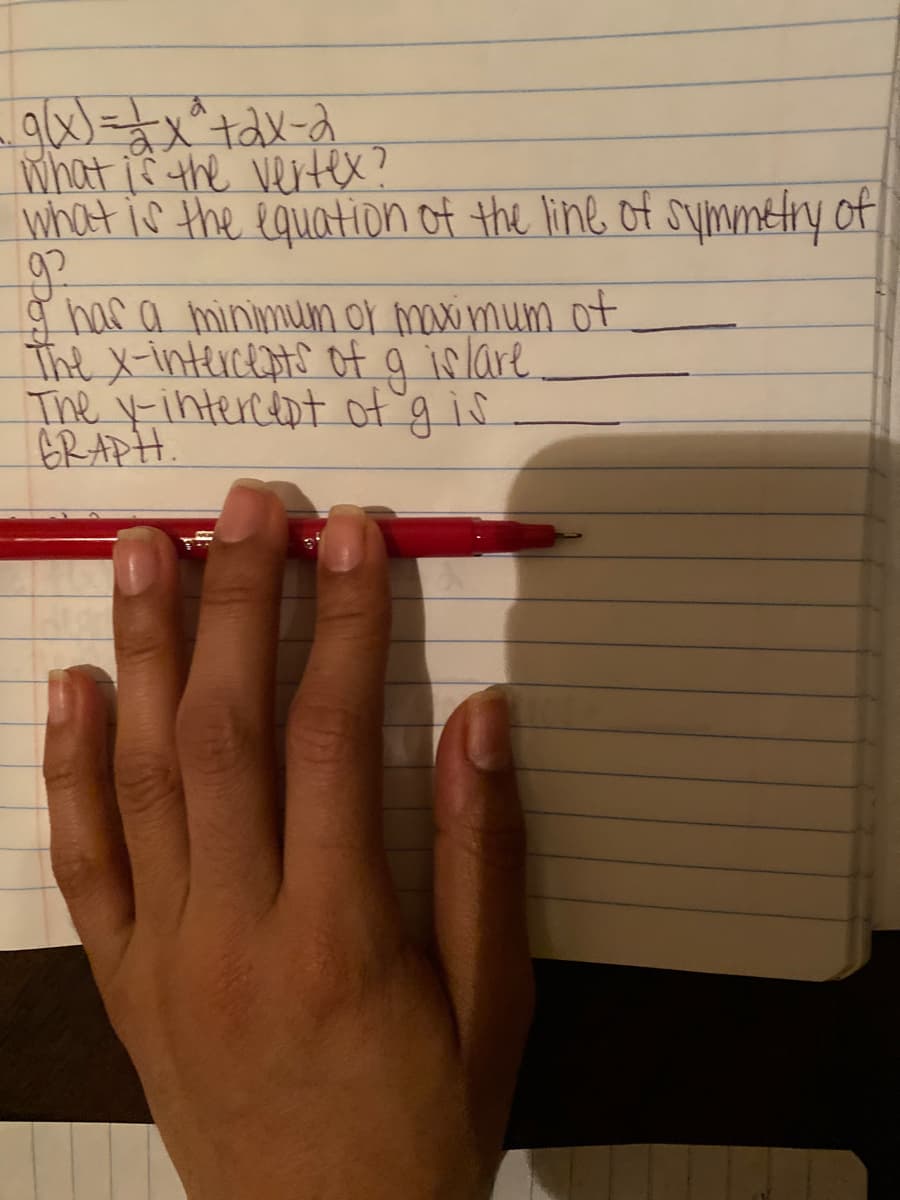 g(x)=½x²+2x-2
What is the vertex?
what is the equation of the line of symmetry of
g?
g has a minimum or maximum of ____
The x-intercepts of g is/are ____
The y-intercept of g is ____
GRAPH.